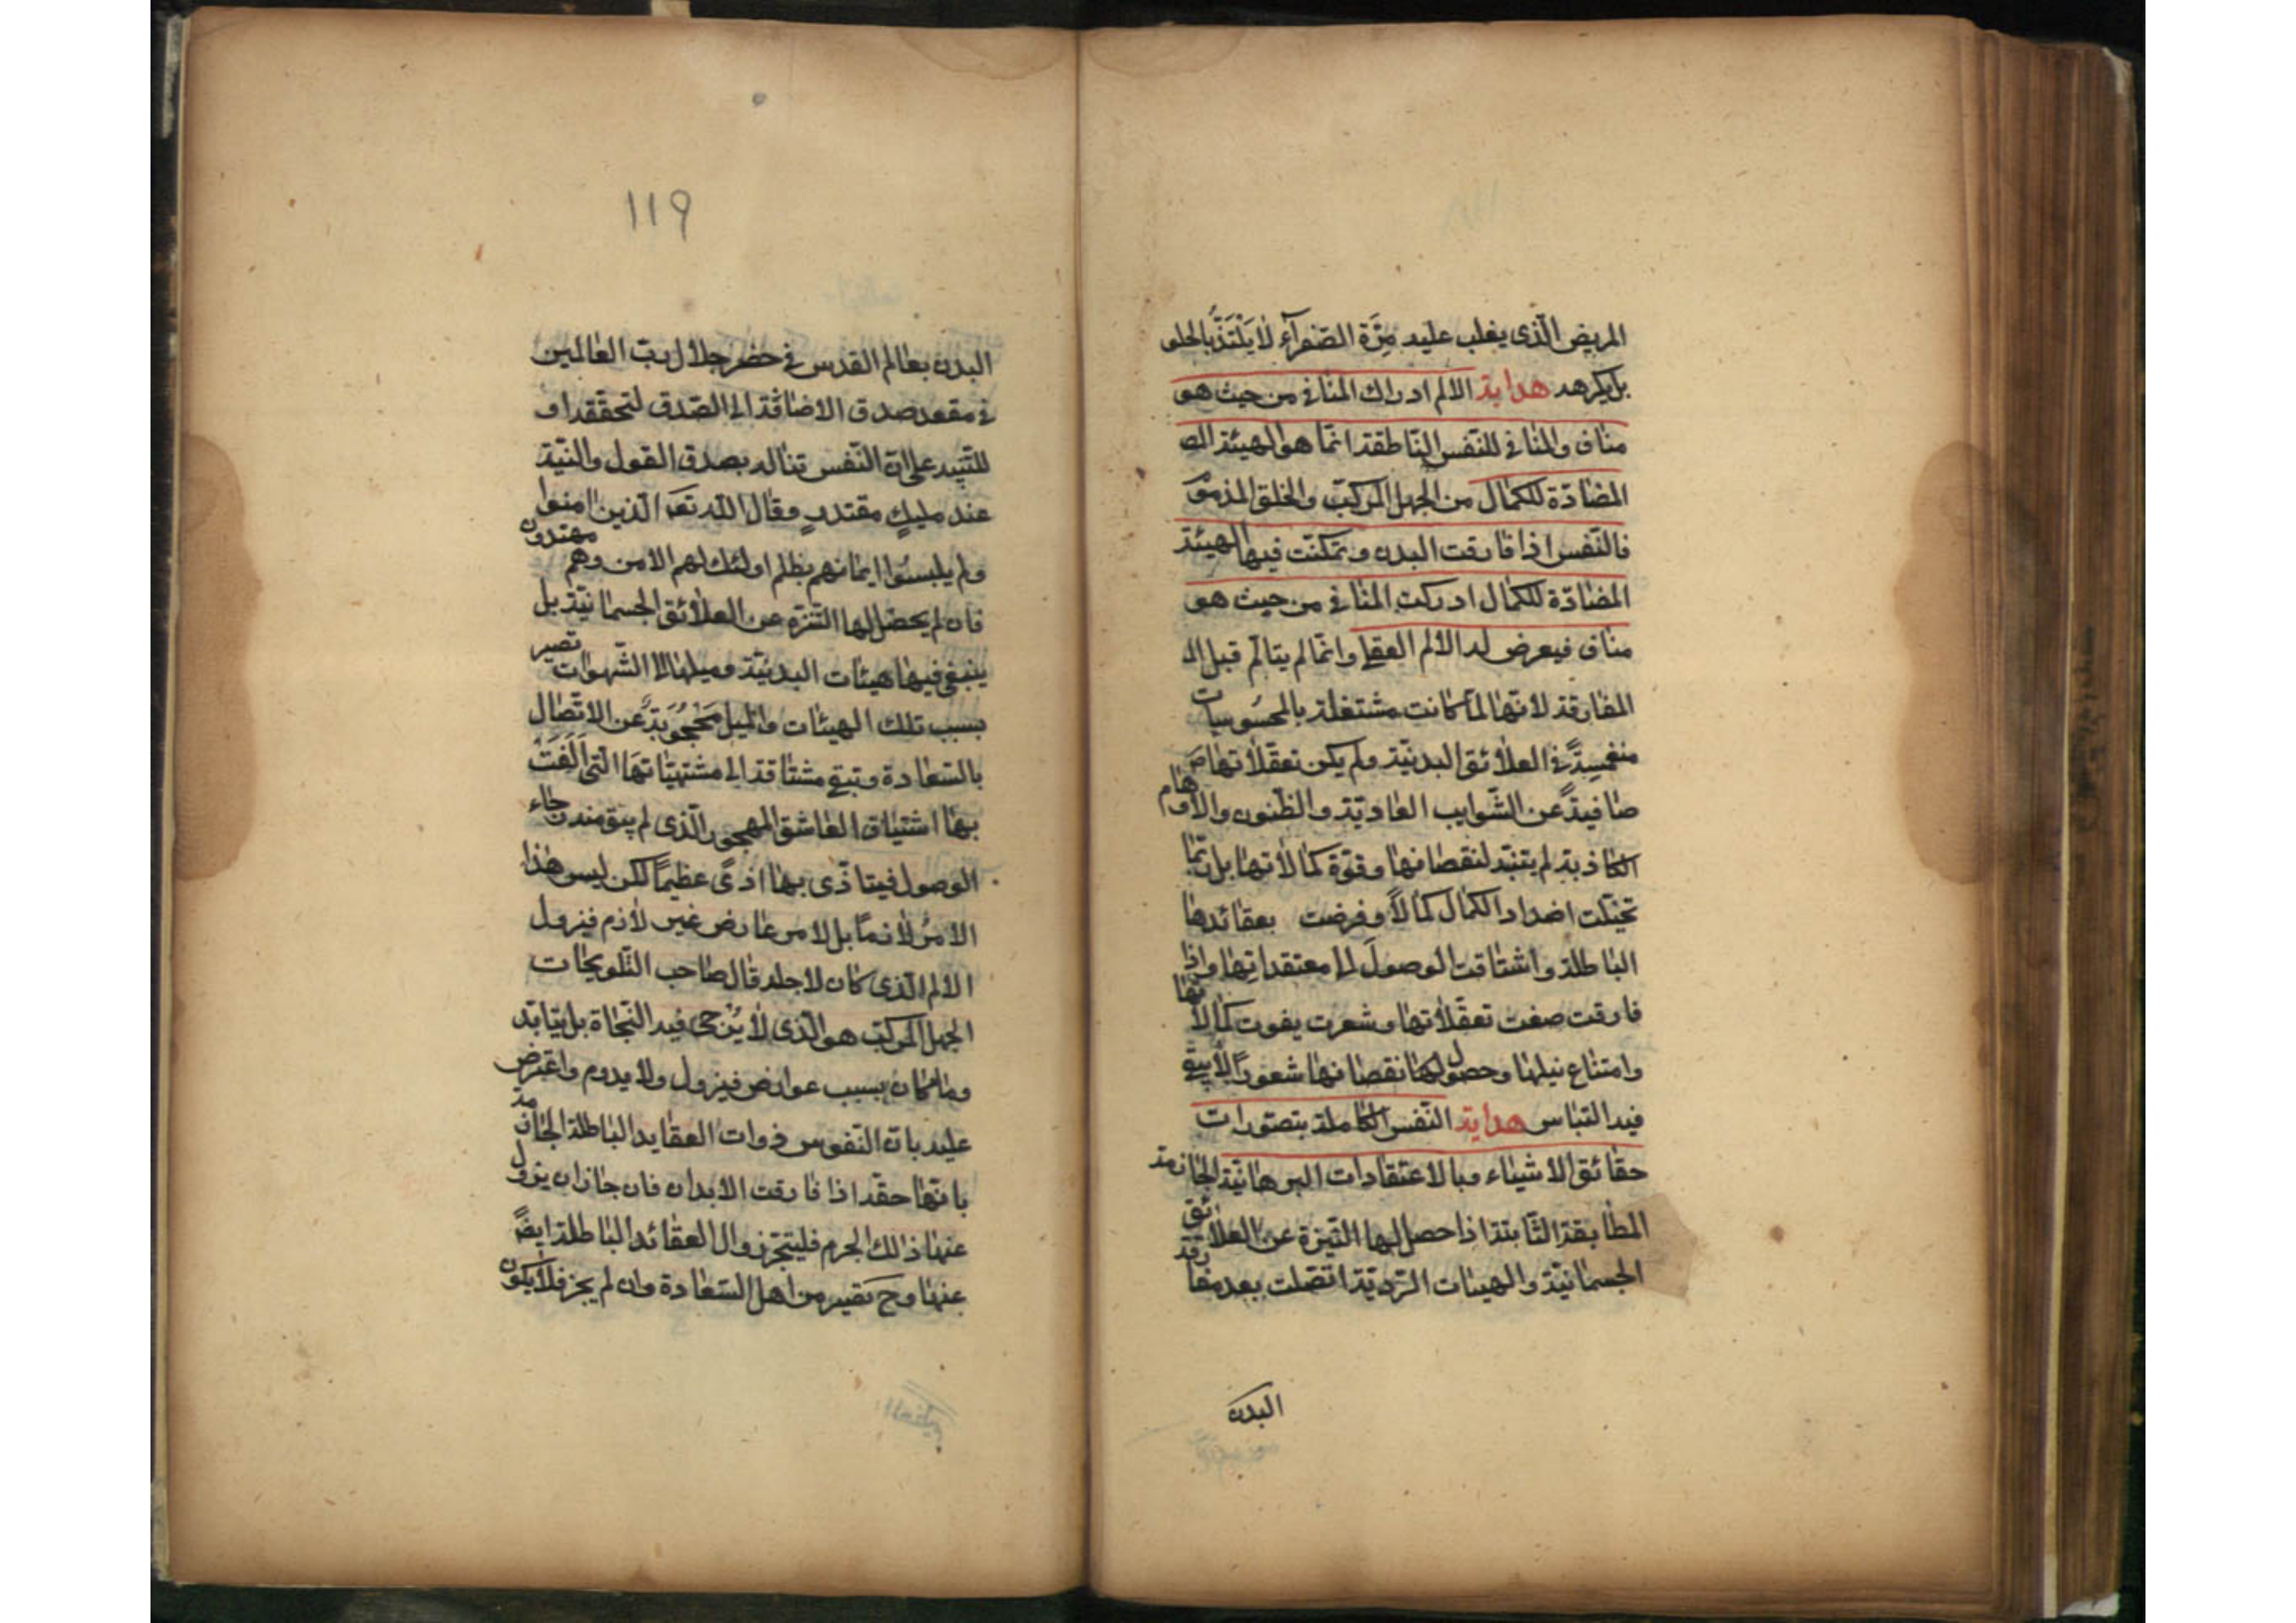 المريض الّذى يغلب عليه مِرَّة الصّفرآءِ لا يَلْتَذُّ بالحلو
بل يكرهه هداية الالم ادراك المنافى من حيث هو
مناف والمنافى للنّفس النّاطقة انّما هو الهيئة
المضادّة للكمال من الجهل المركّب والخلق المذموم
فالنّفس اذا فارقت البدن وتمكّنت فيها الهيئة
المضادّة للكمال ادركت المنافى من حيث هو
مناف فيعرض له الالم العقلى وانّما لم يتالّم قبل
المفارقة لانّها لمّا كانت مشتغلة بالمحسُوسيات
منغمسِةً فى العلائق البدنيّة ولم يكن تعقّلاتها
صافيةً عن الشّوايب العاديّة والظّنون والاوهام
الكاذبة لم يتنبّه لنقصانها وقوّة كمالاتها بل ربّما
تخيّلت اضداد الكمال كمالاً وفرضت بعقائدها
الباطلة واشتاقت الوصولَ الى معتقداتِها واذا
فارقت صفت تعقّلاتها وشعرت بفوت كمالاتها
وامتناع نيلها وحصول نقصانها شعوراً لا يبقى
فيه التباس هداية النّفس الكاملة بتصوّرات
حقائق الاشياء وبالاعتقادات البرهانيّة الجازمة
المطابقة الثّابتة اذا حصل لها التّنزّه عن العلائق
الجسمانيّة والهيئات الرّديّة اتّصلت بعد مفارقة
البدن
١١٩
البدن بعالم القدس فى حضر جلال ربّ العالمين
فى مقعد صدق الاضافة الى الصّدق لتحقّقه او
للتّنبيه على انّ النّفس تناله بصدق القول والنيّة
عند مليكٍ مقتدرٍ وقال اللّه تعَ الّذين امنوا
ولم يلبسُوا ايمانهم بظلم اولئك لهم الامن وهم مهتدون
فان لم يحصل لها التّنزّه عن العلائق الجسمانيّة بل
ينبغى فيها هيئات البدنيّة وميلها الى الشّهوات تصير
بسبب تلك الهيئات والميل مَحْجُوبَةً عن الاتّصال
بالسّعادة وتبقى مشتاقة الى مشتهيّاتهَا الّتى اَلَفَتْ
بها اشتياق العاشق المهجور الّذى لم يبق منه رجاء
الوصول فيتاذّى بها اذىً عظيماً لكن ليس هذا
الامرُ لازماً بل لامر عارض غير لازم فيزول
الالم الّذى كان لاجله قال صاحب التّلويحات
الجهل المركّب هو الّذى لا يُرْجى فيه النّجاة بل يتابّد
وما كان بسبب عوارض فيزول ولا يدوم واعترض
عليه بانّ النّفوس ذوات العقايد الباطلة الجازمة
بانّها حقّة اذا فارقت الابدان فان جاز ان يزول
عنها ذالك الجرم فليتجز زوال العقائد الباطلة ايضاً
عنها وحَ تصير من اهل السّعادة وان لم يجز فلا يكون